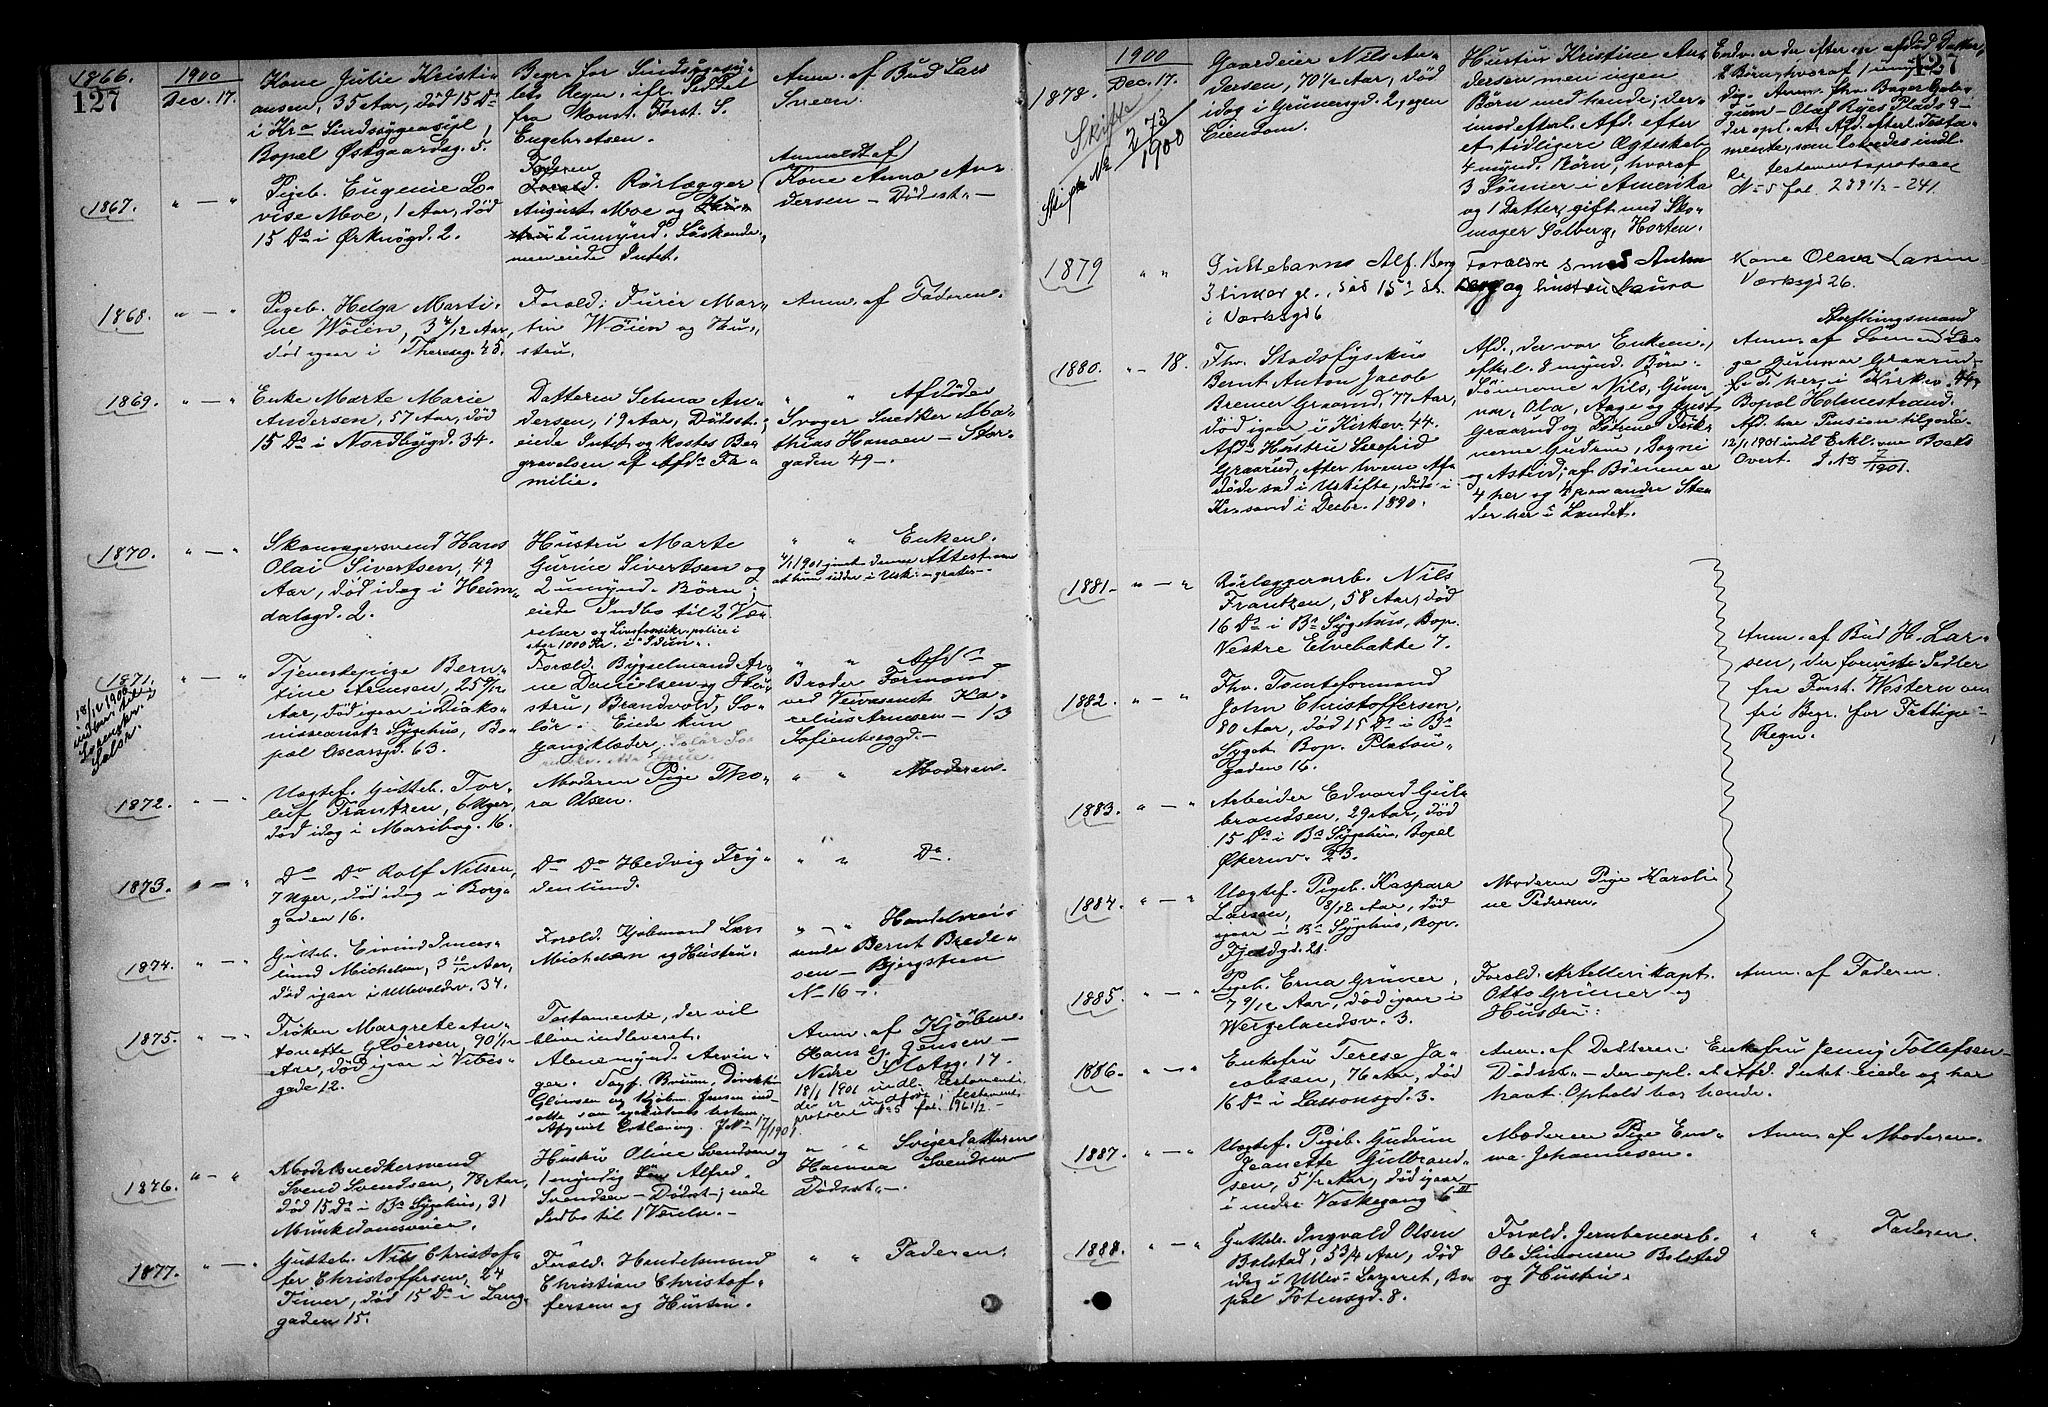 1866.
127
1900
Dec. 17.
Kone Julie Kristi-
ansen, 35 Aar, død 15 Ds
i Kra Sindssygeasyl,
Bopel Østgaardsg. 5.
Begr. for Sindssygeasy-
lets Regn. ifl. Seddel
fra Konst. Forst. S.
Engebretsen.
Anm. af Bud Lars
Sveen.
1867.
" — "
Pigeb. Eugenie Lo-
vise Moe, 1 Aar, død
15 Ds i Ørknøgd. 2.
Faderen
Foræld. Rørlægger
August Moe og Hu-
stru 2 umynd. Søskende,
men eiede Intet.
Anmeldt af
Kone Anna An-
dersen – Dødsst. –
1868.
" — "
Pigeb. Helga Marti-
ne Wöien, 3 4/12 Aar,
død igaar i Thereseg. 45.
Foræld: Furer Mar-
tin Wöien og Hu-
stru.
Anm. af Faderen.
1869.
" — "
Enke Marte Marie
Andersen, 57 Aar, død
15 Ds i Nordbygd. 34.
Datteren Selma An-
dersen, 19 Aar, Dødsst.
eiede Intet og kostes Be-
gravelsen af Afds Fa-
milie.
" " Afdødes
Svoger Snedker Ma-
thias Hansen – Stor-
gaden 49 –.
1870.
" — "
Skomagersvend Hans
Olai Sivertsen, 49
Aar, død idag i Heim-
dalsgd. 2.
Hustru Marte
Gurine Sivertsen og
2 umynd. Børn;
eiede Indbo til 2 Væ-
relser og Livsforsikr. police i
stor 1000 Kr. i "Idun".
" " Enken.
4/1 1901 givet denne Attest om
at hun sidder i Usk. – gratis –.
1871.
18/12 1900
" — "
Tjenestepige Bern-
tine Arnesen, 25 9/12
Aar, død igaar i Diako-
nissernes Sygehus, Bo-
pæl Oscarsgd. 63.
Foræld. Bygselmand Ar-
ne Danielsen og Hu-
stru, Brandvold, So-
lør. Eiede kun
gangklæder.
" " Afds
Broder Formand
ved Veivæsenet Ka-
relius Arnesen – 13
Sofienberggd. –
1872.
" — "
Uægtef. Gutteb. Tor-
leif Frantzen, 6 Uger,
død idag i Maribog. 16.
Moderen Pige Tho-
ra Olsen.
" " Moderen.
1873.
" — "
Do Do Rolf Nilsen,
7 Uger, død idag i Borg-
gaden 16.
Do Do Hedvig Fry-
denlund.
" " Do.
1874.
" — "
Gutteb. Eivind
lund Michelsen, 3 10/12 Aar,
død igaar i Ullevoldsv. 34.
Foræld. Kjøbmand Lars
Michelsen og Hustru.
" " Handelsreis-
ende Bernt Brede-
sen – Bjergstien
No 16 –.
1875.
" — "
Frøken Margrete An-
tonette Gløersen, 90 1/12
Aar, død igaar i Vibes-
gade 12.
Testamente, der vil
blive indleveret.
Alene mynd. Arvin-
ger. Sagf. Bruun, Direktør
Gløersen og Kjøbm. Jensen ind-
satte som
Afgivet Erklæring. J.No 17/1901.
Anm. af Kjøbm.
Hans G. Jensen –
Nedre Slotsg. 17.
18/1 1901 indl. Testament;
det er indført i testament-
protocol No 5 fol. 196 1/2. –
1876.
" — "
Modelsnedkersvend
Svend Svendsen, 78 Aar,
død 15 Ds i Bs Sygehus, 31
Munkedamsveien.
Hustru Oline Svendsen og
1 myndig Søn Alfred
Svendsen – Dødsst. –; eiede
Indbo til 1 Værelse. –
" " Svigerdatteren
Hanna Svendsen
Dødsst. –.
1877.
" — "
Gutteb. Nils Christof-
fer Christoffersen, 24
Timer, død 15 Ds i Lang-
gaden 15.
Foræld. Handelsmand
Christian Christof-
fersen og Hustru.
" " Faderen.
1900
1878.
Dec. 17.
Skifte
Skifte No 273/1900
Gaardeier Nils An-
dersen, 70 1/2 Aar, død
idag i Grünersgd. 2, egen
Eiendom.
Hustru Kristine An-
dersen men ingen
Børn med hende; der-
imod efterl. Afd. efter
et tidligere Ægteskab
4 mynd. Børn, hvoraf
3 Sønner i Amerika
og 1 Datter, gift med Sko-
mager Solberg, Horten.
Endv. er der efter en afdød Datter
2 Børn, hvoraf 1 umyn-
dig. Anm. fhv. Bager
– Olaf Ryes Plads 9 –
der opl. at Afd. efterl. Testa-
mente, som lovedes indl.
testamentsprotocol
No 5 fol. 239 1/2 – 241.
127
1879
" "
Guttebarn Alf. Berg
3 timer gl., død 15 ds.
i Værksgd 6
Forældre smed Anton
Berg og hustru Laura
Kone Olava Larsen
Værksgd 26.
1880.
" – 18.
Fhv. Stadsfysikus
Bernt Anton Jacob
Bremer Graarud, 77 Aar,
død igaar i Kirkev. 44.
Afds Hustru
Graarud, efter hvem Af-
døde sad i Uskifte, døde i
Kr.sand i Decbr. 1890.
Afd., der var Enkem.,
efterl. 8 mynd. Børn:
Sønnerne Nils, Gun-
nar, Ola, Aage og
Graarud og Døtrene Frøk-
nerne Gudrun, Dagny
og Astrid; af Børnene er
4 her og 4 paa andre Ste-
der her i Landet.
Storthingsmand
Anm. af Sønnen Læ-
ge Gunnar Graarud
f. T. her, i Kirkev. 44,
Bopæl Holmestrand.
Afd. har Pension tilgode.
12/1 1901 indl. Erkl. om Boets
Overt. J. No 7/1901.
1881.
" — "
Rørlæggerarb. Nils
Frantzen, 58 Aar, død
16 Ds i Bs Sygehus, Bop.
Vestre Elvebakke 7.
Anm. af Bud H. Lar-
sen, der foreviste Sedler
fra Forst. Western om
fri Begr. for Fattigv.
Regn.
1882.
" — "
Fhv. Tomteformand
John Christoffersen,
80 Aar, død 15 Ds i Bs
Sygeh. Bop. Platou-
gaden 16.
1883.
" — "
Arbeider Edvard Gul-
brandsen, 29 Aar, død
15 Ds i Bs Sygehus, Bopæl
Økernv. 23.
1884.
" — "
Uægtef. Pigeb. Kaspara
Larsen, 8/12 Aar, død
igaar i Bs Sygehus, Bop.
Fjeldgd. 21.
Moderen Pige Karoli-
ne Pedersen.
1885.
" — "
Pigeb. Erna Grüner,
7 9/12 Aar, død igaar i
Wergelandsv. 3.
Foræld. Artillerikapt.
Otto Grüner og
Hustru.
Anm. af Faderen.
1886.
" — "
Enkefru Terese Ja-
cobsen, 76 Aar, død
16 Ds i Lassonsgd. 3.
Anm. af Datteren Enkefru Jenny Tollefsen –
Dødsst. – der opl. at Afd. Intet eiede og har
havt Ophold hos hende.
1887.
" — "
Uægtef. Pigeb. Gudrun
Jeanette Gulbrand-
sen, 5 1/2 Aar, død igaar
i indre Vaskegang 6 III
Moderen Pige Em-
ma Johannesen.
Anm. af Moderen.
1888.
" — "
Gutteb. Ingvald Olsen
Bolstad, 5 3/4 Aar, død
idag i Ullev. Lazaret, Bo-
pæl Totensgd. 8.
Foræld. Jernbanearb.
Ole Simonsen Bolstad
og Hustru.
" " Faderen.